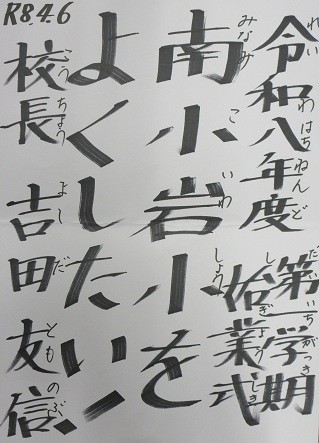 R8.4.6
令和八年度 第一学期 始業式
れいわはちねんど だいいちがっき しぎょうしき
南小岩小を
みなみこいわしょう
よくしたい
校長 吉田友信
こうちょう よしだ とものぶ